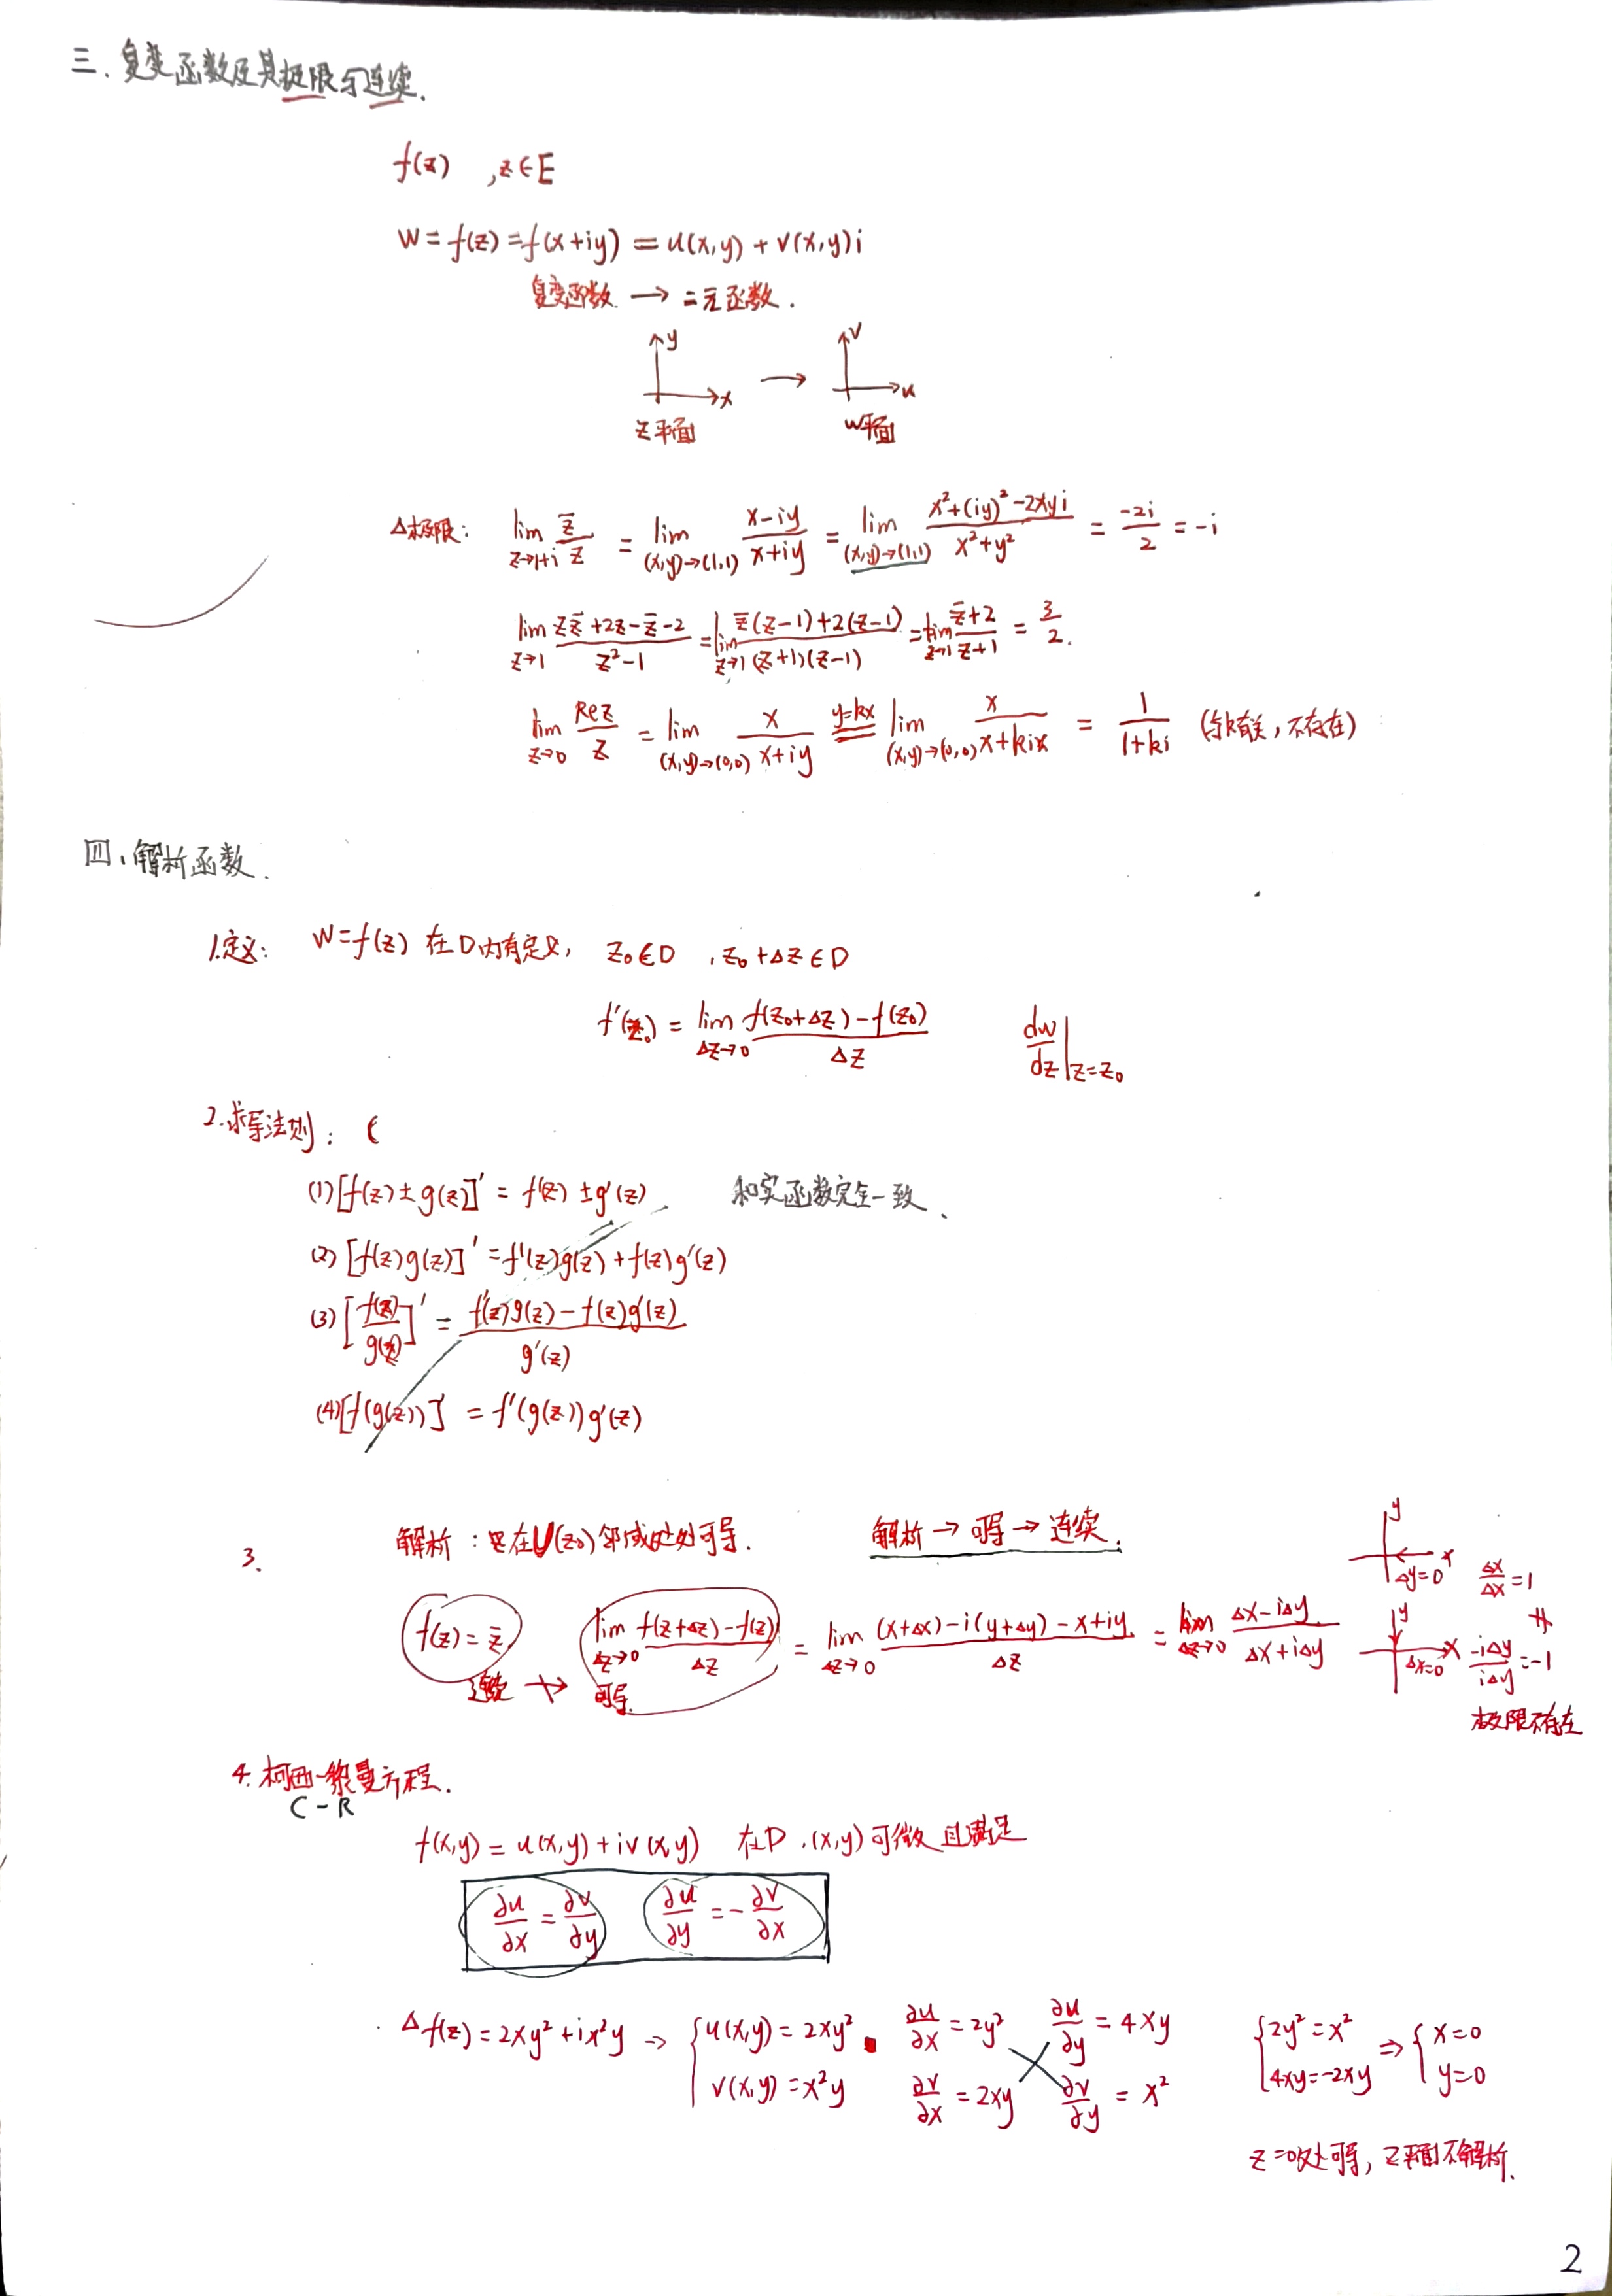 三、复变函数及其极限与连续.
f(z) ,z∈E
W=f(z)=f(x+iy)=u(x,y)+v(x,y)i
复变函数 → 二元函数.
y → v
x u
z平面 w平面
△极限: lim_{z→1+i} z̄/z = lim_{(x,y)→(1,1)} (x-iy)/(x+iy) = lim_{(x,y)→(1,1)} (x²+(iy)²-2xyi)/(x²+y²) = -2i/2 = -i
lim_{z→1} (zz̄+2z-z̄-2)/(z²-1) = lim_{z→1} (z̄(z-1)+2(z-1))/((z+1)(z-1)) = lim_{z→1} (z̄+2)/(z+1) = 3/2.
lim_{z→0} Rez/z = lim_{(x,y)→(0,0)} x/(x+iy) y=kx lim_{(x,y)→(0,0)} x/(x+kix) = 1/(1+ki) (与k有关,不存在)
四、解析函数.
1.定义: W=f(z) 在D内有定义, z₀∈D ,z₀+Δz∈D
f'(z₀) = lim_{Δz→0} (f(z₀+Δz)-f(z₀))/Δz dw/dz|_{z=z₀}
2.求导法则: (
(1)[f(z)±g(z)]' = f'(z)±g'(z) 和实函数完全一致、
(2)[f(z)g(z)]' = f'(z)g(z)+f(z)g'(z)
(3)[f(z)/g(z)]' = (f'(z)g(z)-f(z)g'(z))/g'(z)
(4)[f(g(z))]' = f'(g(z))g'(z)
3. 解析:在U(z₀)邻域处处可导. 解析→可导→连续.
y
x
Δy=0 Δx/Δx=1
f(z)=z̄ lim_{Δz→0} (f(z+Δz)-f(z))/Δz = lim_{Δz→0} ((x+Δx)-i(y+Δy)-x+iy)/Δz = lim_{Δz→0} (Δx-iΔy)/(Δx+iΔy)
≠
y
x
Δx=0 -iΔy/iΔy=-1
连续 ↛ 可导.
极限不存在
4.柯西-黎曼方程.
C-R
f(x,y)=u(x,y)+iv(x,y) 在D,(x,y)可微且满足
∂u/∂x=∂v/∂y ∂u/∂y=-∂v/∂x
△f(z)=2xy²+ix²y → {u(x,y)=2xy² ∂u/∂x=2y² ∂u/∂y=4xy {2y²=x² ⇒ {x=0
v(x,y)=x²y ∂v/∂x=2xy ∂v/∂y=x² 4xy=-2xy y=0
z=0处可导,z平面不解析.
2